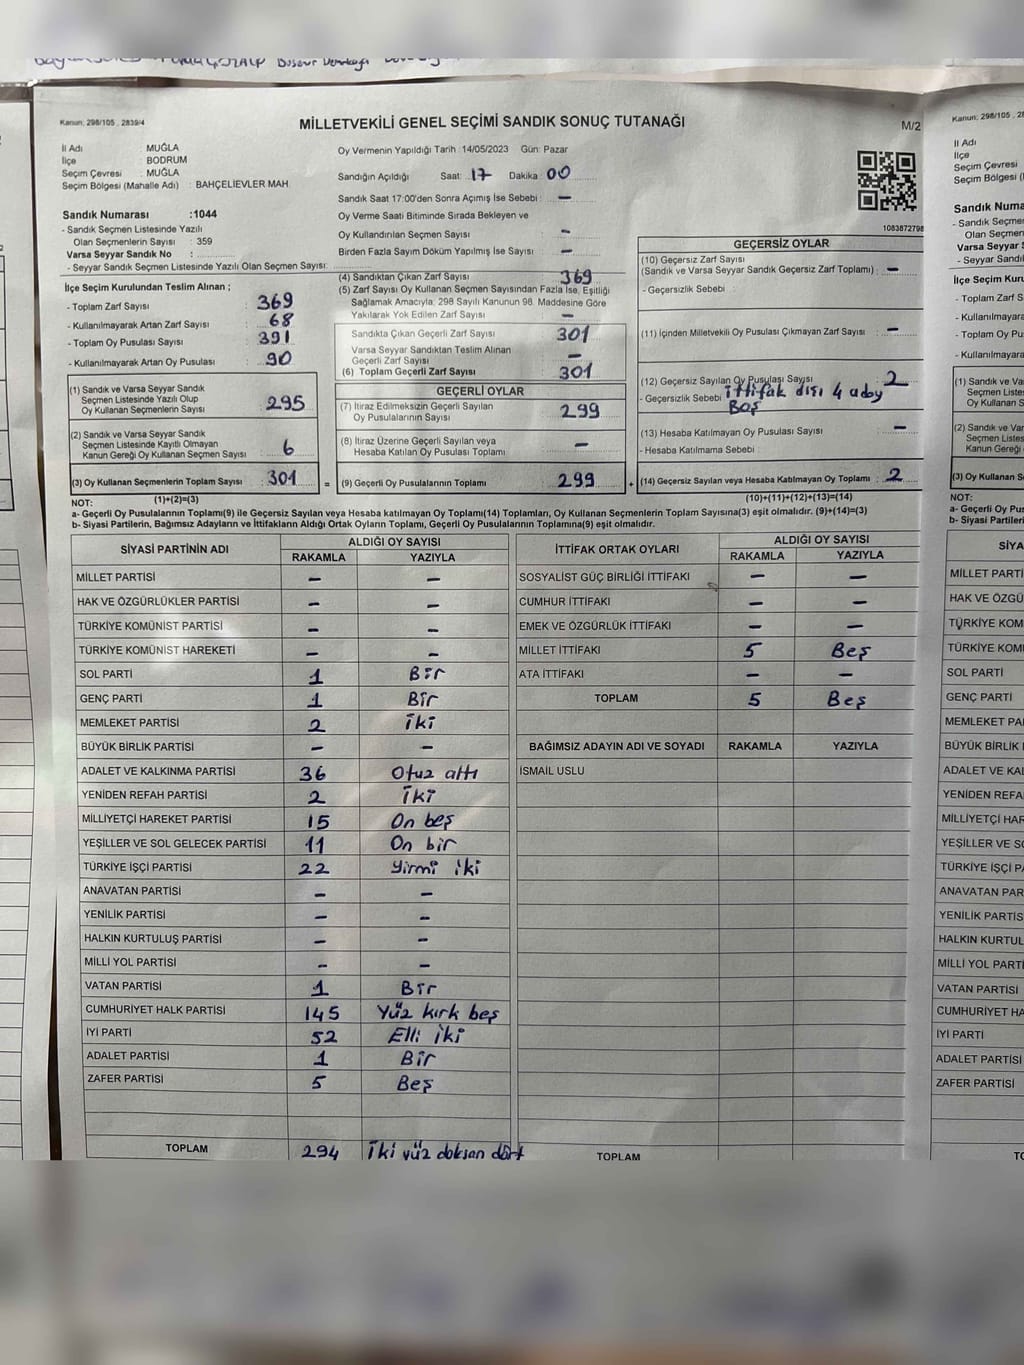 Kanun; 298/105 , 2839/4
MİLLETVEKİLİ GENEL SEÇİMİ SANDIK SONUÇ TUTANAĞI
M/2
İl Adı MUĞLA
İlçe BODRUM
Seçim Çevresi : MUĞLA
Seçim Bölgesi (Mahalle Adı) : BAHÇELİEVLER MAH
Sandık Numarası :1044
- Sandık Seçmen Listesinde Yazılı
Olan Seçmenlerin Sayısı : 359
Varsa Seyyar Sandık No :
- Seyyar Sandık Seçmen Listesinde Yazılı Olan Seçmen Sayısı:
İlçe Seçim Kurulundan Teslim Alınan ;
- Toplam Zarf Sayısı 369
- Kullanılmayarak Artan Zarf Sayısı : 68
- Toplam Oy Pusulası Sayısı : 391
- Kullanılmayarak Artan Oy Pusulası : 90
(1) Sandık ve Varsa Seyyar Sandık
Seçmen Listesinde Yazılı Olup
Oy Kullanan Seçmenlerin Sayısı : 295
(2) Sandık ve Varsa Seyyar Sandık
Seçmen Listesinde Kayıtlı Olmayan
Kanun Gereği Oy Kullanan Seçmen Sayısı : 6
(3) Oy Kullanan Seçmenlerin Toplam Sayısı : 301
(1)+(2)=(3)
Oy Vermenin Yapıldığı Tarih : 14/05/2023 Gün: Pazar
Sandığın Açıldığı Saat: 17 Dakika : 00
Sandık Saat 17:00'den Sonra Açımış İse Sebebi : -
Oy Verme Saati Bitiminde Sırada Bekleyen ve
Oy Kullandırılan Seçmen Sayısı : -
Birden Fazla Sayım Döküm Yapılmış İse Sayısı : -
(4) Sandıktan Çıkan Zarf Sayısı : 369
(5) Zarf Sayısı Oy Kullanan Seçmen Sayısından Fazla İse, Eşitliği
Sağlamak Amacıyla; 298 Sayılı Kanunun 98. Maddesine Göre
Yakılarak Yok Edilen Zarf Sayısı : -
Sandıkta Çıkan Geçerli Zarf Sayısı : 301
Varsa Seyyar Sandıktan Teslim Alınan
Geçerli Zarf Sayısı : -
(6) Toplam Geçerli Zarf Sayısı : 301
GEÇERLİ OYLAR
(7) İtiraz Edilmeksizin Geçerli Sayılan
Oy Pusulalarının Sayısı : 299
(8) İtiraz Üzerine Geçerli Sayılan veya
Hesaba Katılan Oy Pusulası Toplamı : -
= (9) Geçerli Oy Pusulalarının Toplamı : 299 +
1083872798
GEÇERSİZ OYLAR
(10) Geçersiz Zarf Sayısı
(Sandık ve Varsa Seyyar Sandık Geçersiz Zarf Toplamı) : -
- Geçersizlik Sebebi :
(11) İçinden Milletvekili Oy Pusulası Çıkmayan Zarf Sayısı : -
(12) Geçersiz Sayılan Oy Pusulası Sayısı : 2
- Geçersizlik Sebebi : İttifak dışı 4 aday
Boş
(13) Hesaba Katılmayan Oy Pusulası Sayısı : -
- Hesaba Katılmama Sebebi :
(14) Geçersiz Sayılan veya Hesaba Katılmayan Oy Toplamı : 2
(10)+(11)+(12)+(13)=(14)
NOT:
a- Geçerli Oy Pusulalarının Toplamı(9) ile Geçersiz Sayılan veya Hesaba katılmayan Oy Toplamı(14) Toplamları, Oy Kullanan Seçmenlerin Toplam Sayısına(3) eşit olmalıdır. (9)+(14)=(3)
b- Siyasi Partilerin, Bağımsız Adayların ve İttifakların Aldığı Ortak Oyların Toplamı, Geçerli Oy Pusulalarının Toplamına(9) eşit olmalıdır.
SİYASİ PARTİNİN ADI ALDIĞI OY SAYISI
RAKAMLA YAZIYLA
MİLLET PARTİSİ - -
HAK VE ÖZGÜRLÜKLER PARTİSİ - -
TÜRKİYE KOMÜNİST PARTİSİ - -
TÜRKİYE KOMÜNİST HAREKETİ - -
SOL PARTİ 1 Bir
GENÇ PARTİ 1 Bir
MEMLEKET PARTİSİ 2 İki
BÜYÜK BİRLİK PARTİSİ - -
ADALET VE KALKINMA PARTİSİ 36 Otuz altı
YENİDEN REFAH PARTİSİ 2 İki
MİLLİYETÇİ HAREKET PARTİSİ 15 On beş
YEŞİLLER VE SOL GELECEK PARTİSİ 11 On bir
TÜRKİYE İŞÇİ PARTİSİ 22 Yirmi iki
ANAVATAN PARTİSİ - -
YENİLİK PARTİSİ - -
HALKIN KURTULUŞ PARTİSİ - -
MİLLİ YOL PARTİSİ - -
VATAN PARTİSİ 1 Bir
CUMHURİYET HALK PARTİSİ 145 Yüz kırk beş
İYİ PARTİ 52 Elli iki
ADALET PARTİSİ 1 Bir
ZAFER PARTİSİ 5 Beş
TOPLAM 294 İki yüz doksan dört
İTTİFAK ORTAK OYLARI ALDIĞI OY SAYISI
RAKAMLA YAZIYLA
SOSYALİST GÜÇ BİRLİĞİ İTTİFAKI - -
CUMHUR İTTİFAKI - -
EMEK VE ÖZGÜRLÜK İTTİFAKI - -
MİLLET İTTİFAKI 5 Beş
ATA İTTİFAKI - -
TOPLAM 5 Beş
BAĞIMSIZ ADAYIN ADI VE SOYADI RAKAMLA YAZIYLA
İSMAİL USLU
TOPLAM
Kanun; 298/105 , 28
İl Adı
İlçe
Seçim Çevresi
Seçim Bölgesi (M
Sandık Numa
- Sandık Seçme
Olan Seçmenl
Varsa Seyyar S
- Seyyar Sandık
İlçe Seçim Kuru
- Toplam Zarf S
- Kullanılmayara
- Toplam Oy Pu
- Kullanılmayara
(1) Sandık ve Va
Seçmen Liste
Oy Kullanan S
(2) Sandık ve Va
Seçmen Liste
Kanun Gereği O
(3) Oy Kullanan Se
NOT:
a- Geçerli Oy Pus
b- Siyasi Partilerin
SİYA
MİLLET PARTİ
HAK VE ÖZGÜ
TÜRKİYE KOM
TÜRKİYE KOM
SOL PARTİ
GENÇ PARTİ
MEMLEKET PA
BÜYÜK BİRLİK
ADALET VE KAL
YENİDEN REFA
MİLLİYETÇİ HAR
YEŞİLLER VE SO
TÜRKİYE İŞÇİ PA
ANAVATAN PAR
YENİLİK PARTİS
HALKIN KURTUL
MİLLİ YOL PARTİ
VATAN PARTİSİ
CUMHURİYET HA
İYİ PARTİ
ADALET PARTİSİ
ZAFER PARTİSİ
TO